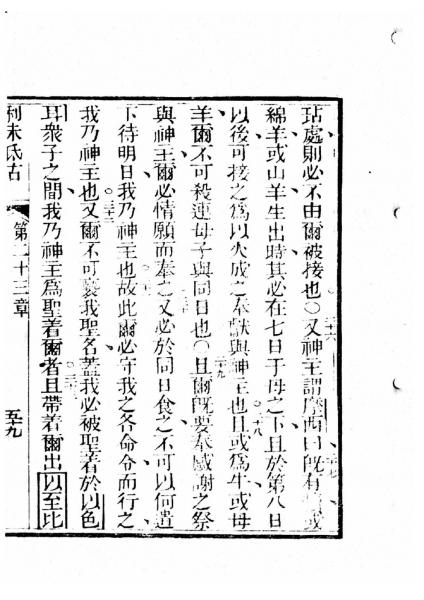 玷處則必不由爾被接也○又神主謂摩西曰旣有或
綿羊或山羊生出時其必在七日于母之下且於第八日
以後可接之爲以火成之奉獻與神主也且或爲牛或母
羊爾不可殺連母子與同日也○且爾旣要奉感謝之祭
與神主爾必情願而奉之又必於同日食之不可以何遺
下待明日我乃神主也故此爾必守我之各命令而行之
我乃神主也又爾不可褻我聖名蓋我必被聖著於以色
耳衆子之間我乃神主爲聖着爾者且帶着爾出以至比
利未氏古 第二十三章 五十九